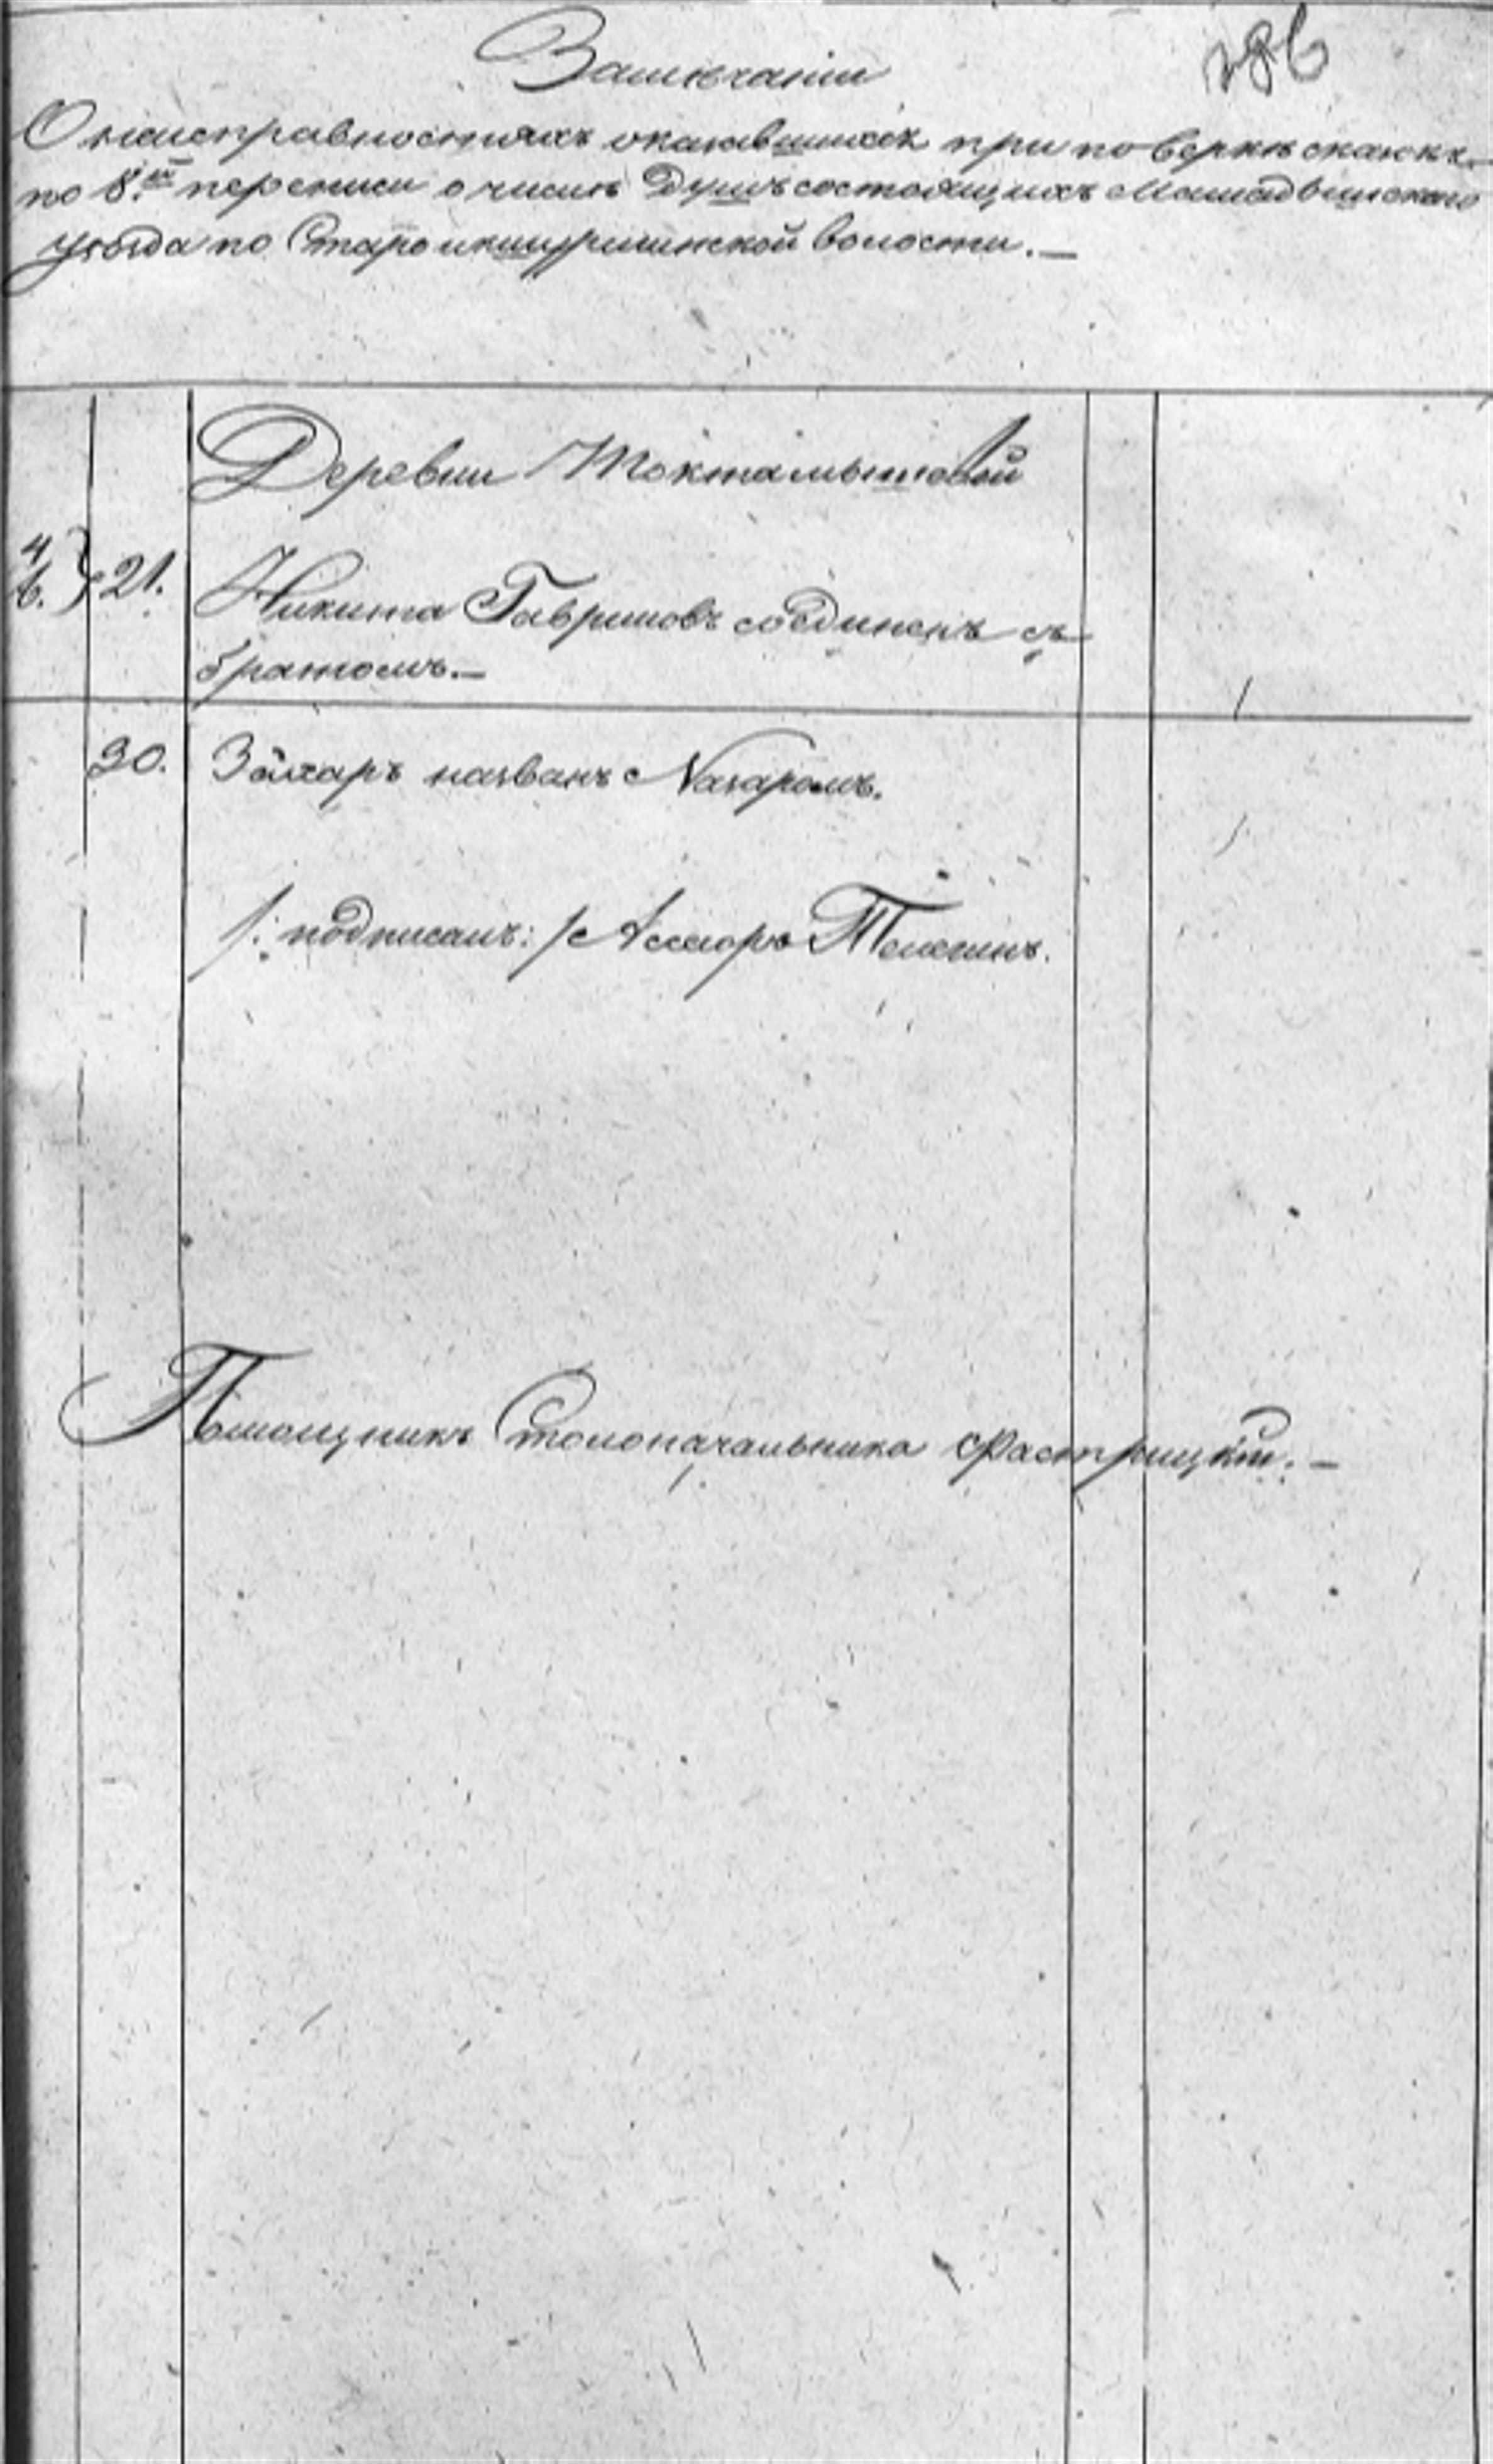 Замечаніи
286
О неисправностяхъ оказавшихся при поверкѣ сказкъ
по 8.й переписи о числѣ душъ состоящихъ Мамадышскаго
уѣзда по Староикшурминской волости.—
Деревни Токтамышевой
4
6. } 21. Никита Гавриловъ соединенъ съ
братомъ.—
30. Захаръ названъ Назаромъ.
/: подписалъ: / Асесоръ Телегинъ.
Помощникъ Столоначальника